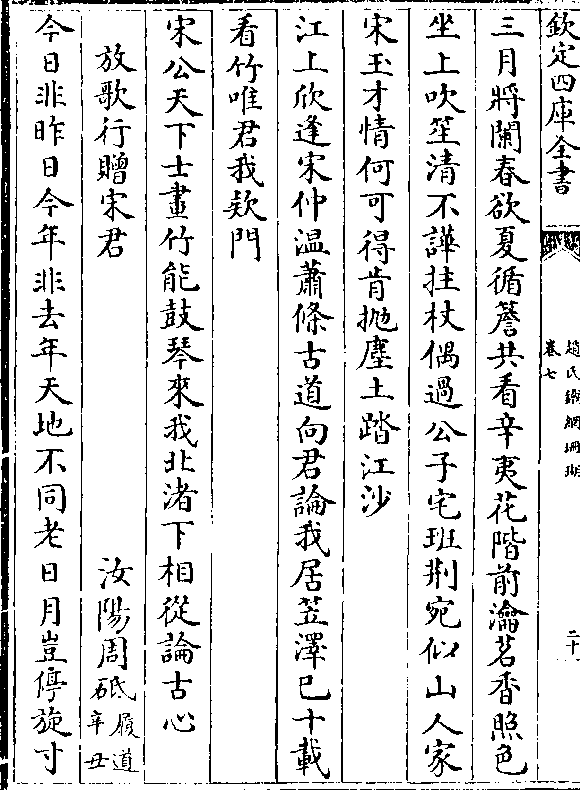 欽定四庫全書
趙氏鐵網珊瑚
卷七
二十
三月將闌春欲夏循簷共看辛夷花階前瀹茗香照色
坐上吹笙清不譁拄杖偶過公子宅班荆宛似山人家
宋玉才情何可得肯抛塵土踏江沙
江上欣逢宋仲温蕭條古道向君論我居笠澤已十載
看竹唯君我欵門
宋公天下士畫竹能鼓琴來我北渚下相從論古心
放歌行贈宋君
汝陽周砥履道辛丑
今日非昨日今年非去年天地不同老日月豈停旋寸